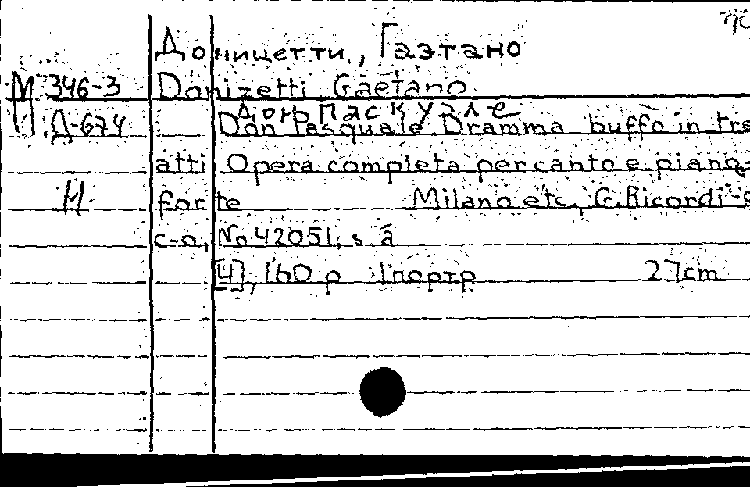 Доницетти, Гаэтано
М 346-3 Donizetti Gaetano
Д-674 Донъ Паскуале
Don Pasquale Dramma buffo in tre
atti Opera completa per canto e piano-
Н forte Milano etc, G. Ricordi
c-o, No 42051, s a
[4], 160 p 1 портр 27cm